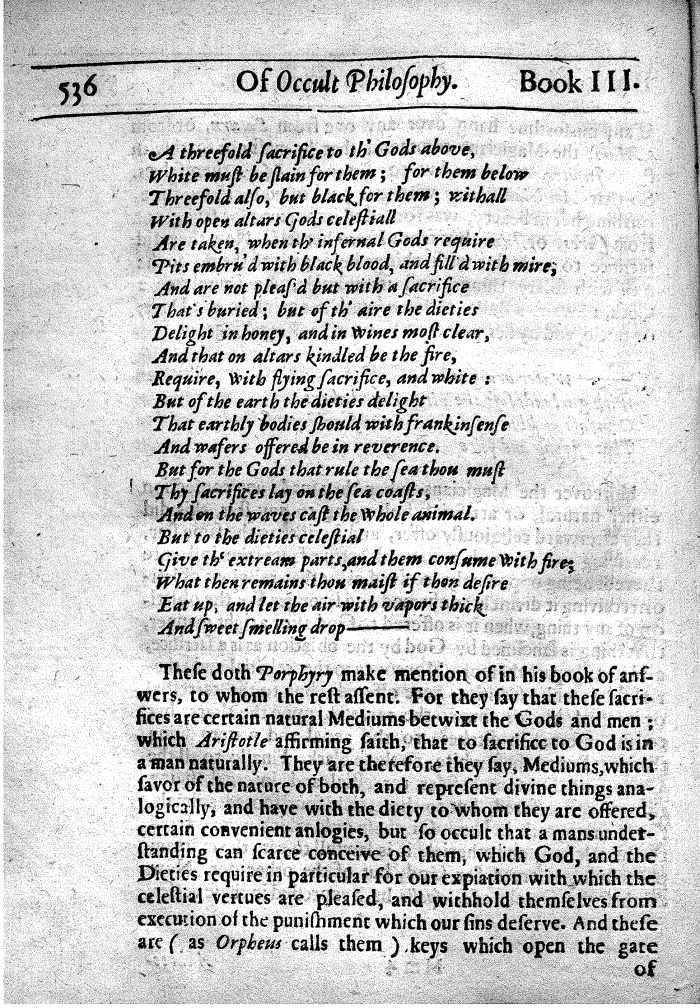 536 Of Occult Philoſophy. Book III.
A threefold ſacrifice to th' Gods above,
White muſt be ſlain for them; for them below
Threefold alſo, but black for them; withall
With open altars Gods celeſtiall
Are taken, when th' infernal Gods require
Pits embru'd with black blood, and fill'd with mire;
And are not pleaſ'd but with a ſacrifice
That's buried; but of th' aire the dieties
Delight in honey, and in Wines moſt clear,
And that on altars kindled be the fire,
Require, With flying ſacrifice, and white:
But of the earth the dieties delight
That earthly bodies ſhould with frankinſenſe
And wafers offered be in reverence.
But for the Gods that rule the ſea thou muſt
Thy ſacrifices lay on the ſea coaſts,
And on the waves caſt the Whole animal.
But to the dieties celeſtial
Give th' extream parts, and them conſume With fire;
What then remains thou maiſt if thon deſire
Eat up, and let the air with vapors thick
And ſweet ſmelling drop———
Theſe doth Porphyry make mention of in his book of anſ-
wers, to whom the reſt aſſent. For they ſay that theſe ſacri-
fices are certain natural Mediums betwixt the Gods and men;
which Ariſtotle affirming ſaith, that to ſacrifice to God is in
a man naturally. They are therefore they ſay, Mediums, which
ſavor of the nature of both, and repreſent divine things ana-
logically, and have with the diety to whom they are offered,
certain convenient anlogies, but ſo occult that a mans under-
ſtanding can ſcarce conceive of them, which God, and the
Dieties require in particular for our expiation with which the
celeſtial vertues are pleaſed, and withhold themſelves from
execution of the puniſhment which our ſins deſerve. And theſe
are ( as Orpheus calls them ) keys which open the gate
of